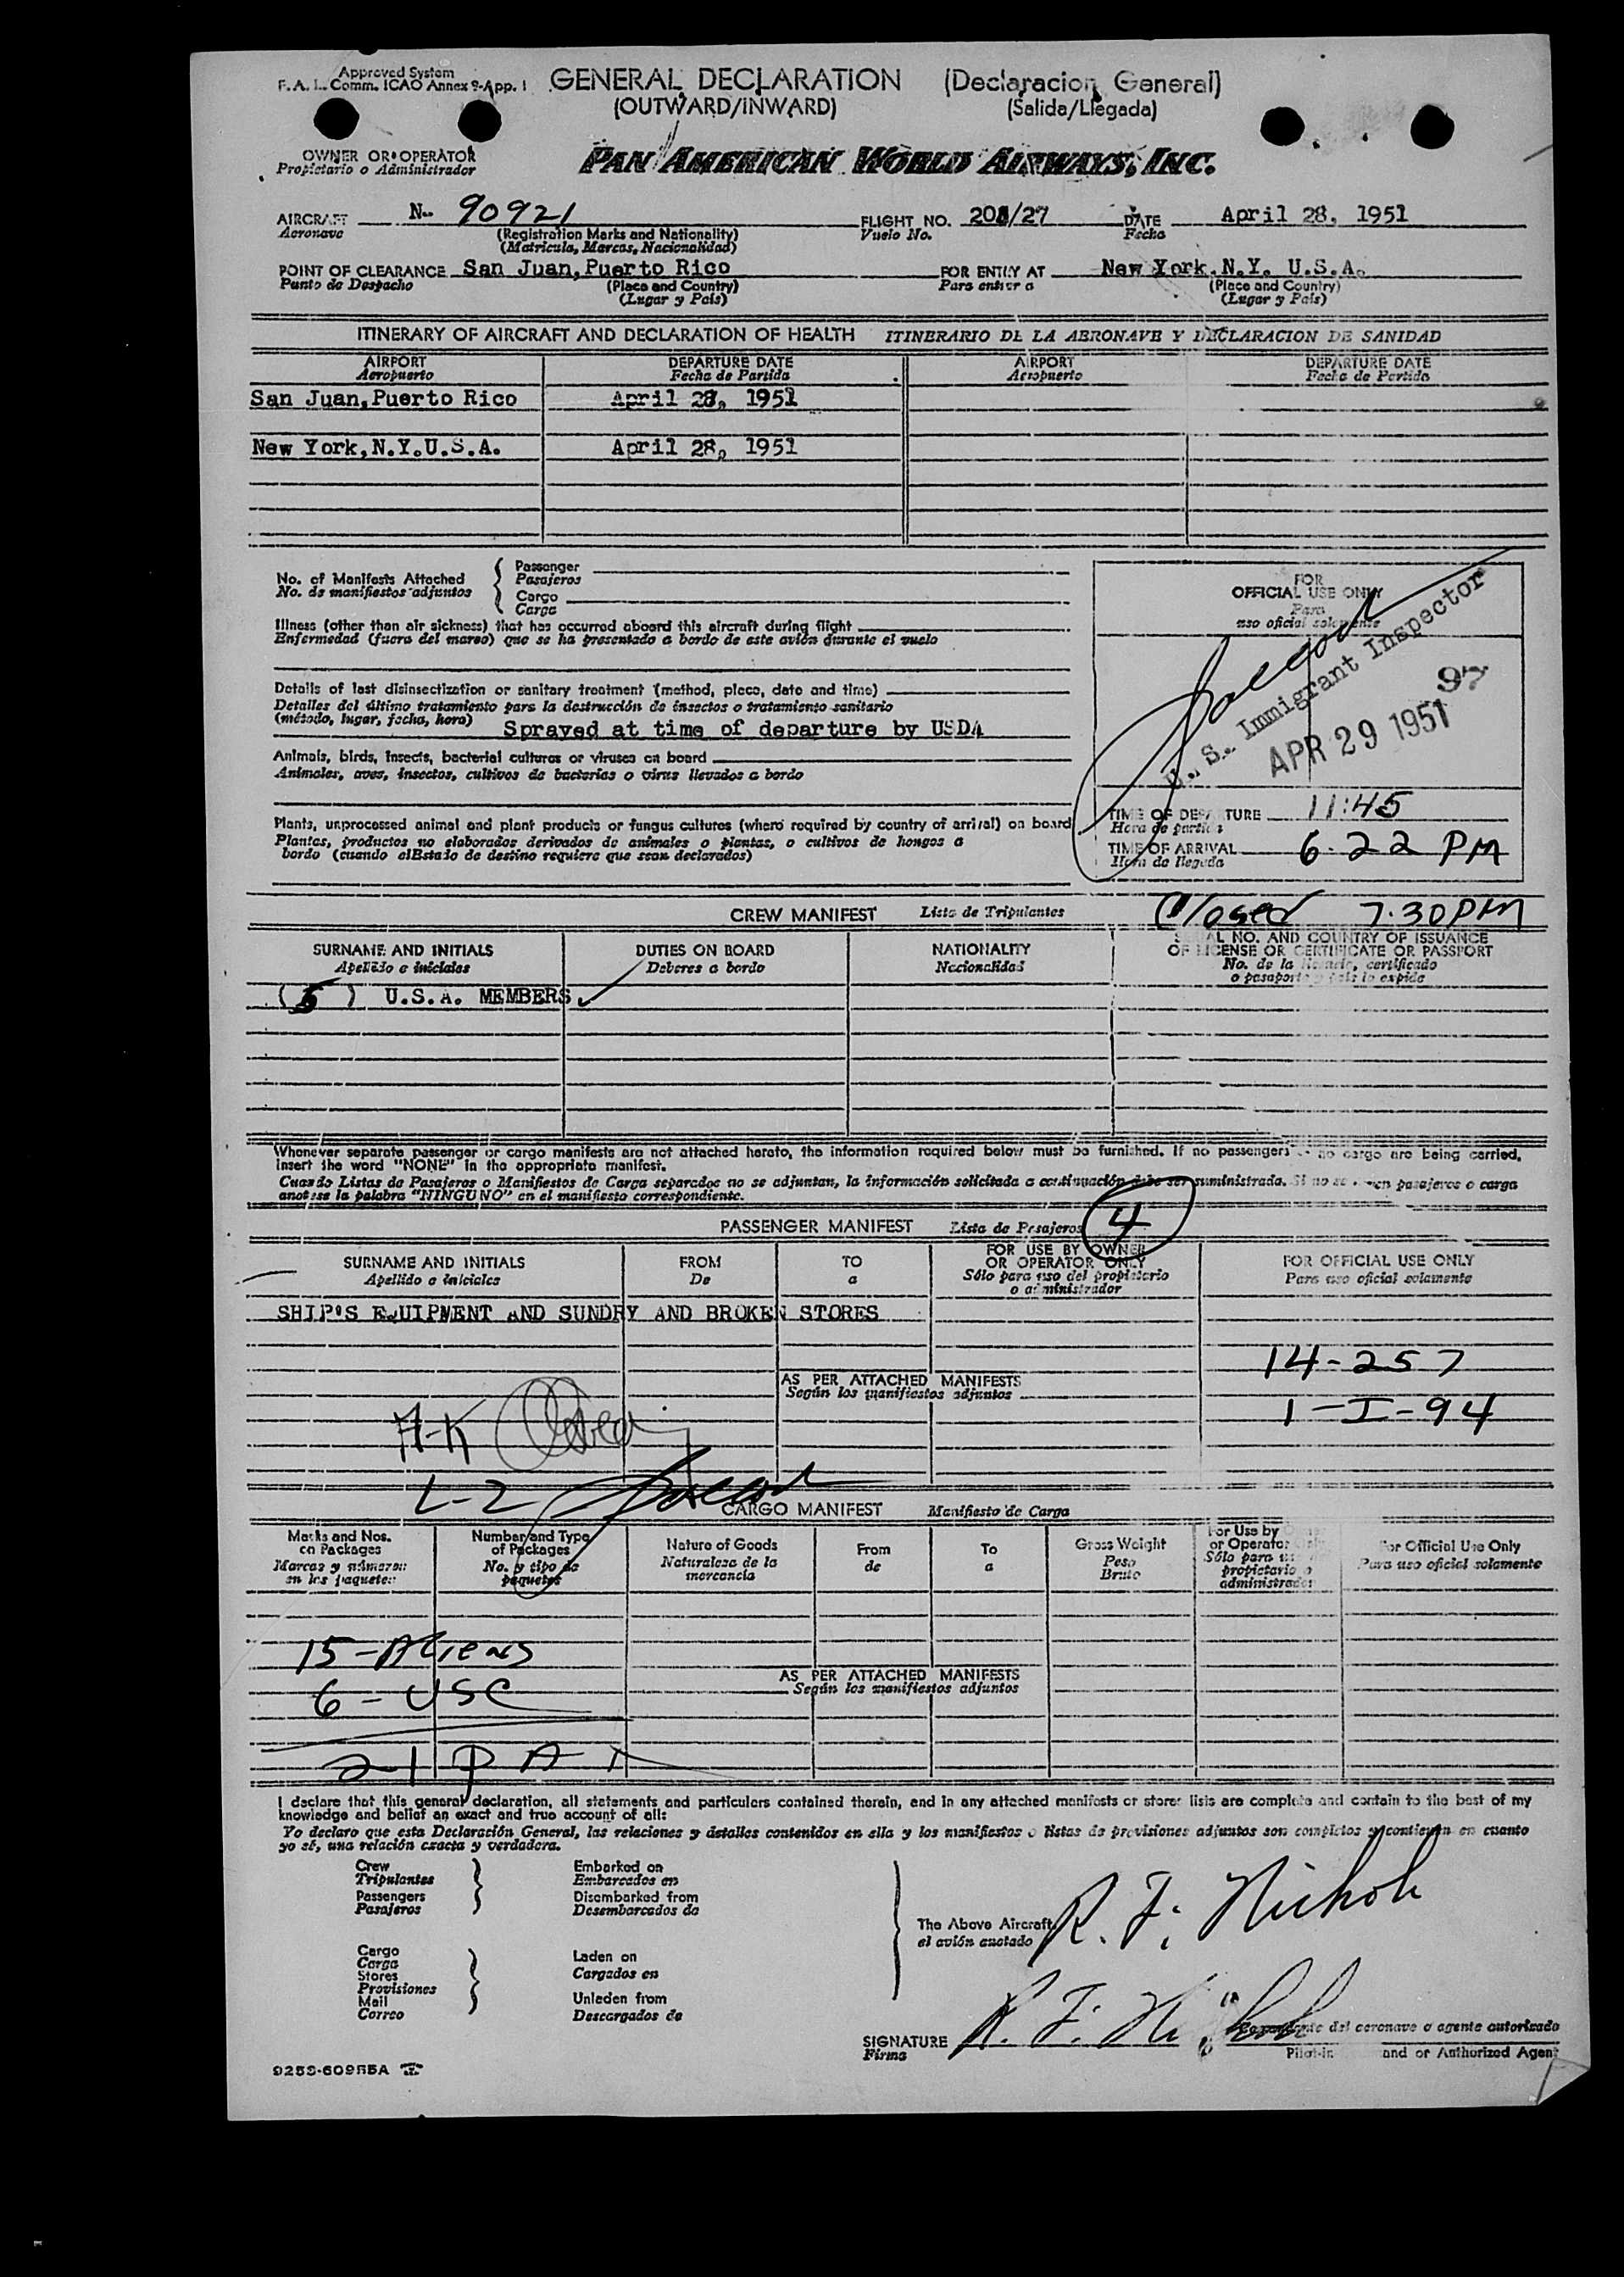 Approved System
F. A. L. Comm. ICAO Annex 9-App. 1
GENERAL DECLARATION (Declaracion General)
(OUTWARD/INWARD) (Salida/Llegada)
OWNER OR OPERATOR
Propietario o Administrador
PAN AMERICAN WORLD AIRWAYS, INC.
AIRCRAFT N- 90921 FLIGHT NO. 208/27 DATE April 28, 1951
Aeronave (Registration Marks and Nationality) Vuelo No. Fecha
(Matricula, Marcas, Nacionalidad)
POINT OF CLEARANCE San Juan, Puerto Rico FOR ENTRY AT New York, N.Y. U.S.A.
Punto de Despacho (Place and Country) Para entrar a (Place and Country)
(Lugar y País) (Lugar y País)
ITINERARY OF AIRCRAFT AND DECLARATION OF HEALTH ITINERARIO DE LA AERONAVE Y DECLARACION DE SANIDAD
AIRPORT DEPARTURE DATE AIRPORT DEPARTURE DATE
Aeropuerto Fecha de Partida Aeropuerto Fecha de Partida
San Juan, Puerto Rico April 28, 1951
New York, N.Y.U.S.A. April 28, 1951
No. of Manifests Attached
No. de manifiestos adjuntos
Passenger
Pasajeros
Cargo
Carga
Illness (other than air sickness) that has occurred aboard this aircraft during flight
Enfermedad (fuera del mareo) que se ha presentado a bordo de este avión durante el vuelo
Details of last disinsectization or sanitary treatment (method, place, date and time)
Detalles del último tratamiento para la destrucción de insectos o tratamiento sanitario
(método, lugar, fecha, hora) Sprayed at time of departure by USDA
Animals, birds, insects, bacterial cultures or viruses on board
Animales, aves, insectos, cultivos de bacterias o virus llevados a bordo
Plants, unprocessed animal and plant products or fungus cultures (where required by country of arrival) on board
Plantas, productos no elaborados derivados de animales o plantas, o cultivos de hongos a
bordo (cuando el Estado de destino requiere que sean declarados)
FOR
OFFICIAL USE ONLY
Para
uso oficial solamente
U. S. Immigrant Inspector
97
APR 29 1951
TIME OF DEPARTURE 11:45
Hora de partida
TIME OF ARRIVAL 6.22 PM
Hora de llegada
Closed 7.30 PM
CREW MANIFEST Lista de Tripulantes
SURNAME AND INITIALS DUTIES ON BOARD NATIONALITY SERIAL NO. AND COUNTRY OF ISSUANCE
OF LICENSE OR CERTIFICATE OR PASSPORT
Apellido e iniciales Deberes a bordo Nacionalidad No. de la licencia, certificado
o pasaporte y país lo expide
(5) U.S.A. MEMBERS
Whenever separate passenger or cargo manifests are not attached hereto, the information required below must be furnished. If no passengers or no cargo are being carried,
insert the word "NONE" in the appropriate manifest.
Cuando Listas de Pasajeros o Manifiestos de Carga separados no se adjuntan, la información solicitada a continuación debe ser suministrada. Si no se pasajeros o carga
anotese la palabra "NINGUNO" en el manifiesto correspondiente.
PASSENGER MANIFEST Lista de Pasajeros 4
SURNAME AND INITIALS FROM TO FOR USE BY OWNER
OR OPERATOR ONLY FOR OFFICIAL USE ONLY
Apellido e iniciales De a Sólo para uso del propietario
o administrador Para uso oficial solamente
SHIP'S EQUIPMENT AND SUNDRY AND BROKEN STORES
14-257
AS PER ATTACHED MANIFESTS
Según los manifiestos adjuntos
1-I-94
A-K
L-2
CARGO MANIFEST Manifiesto de Carga
Marks and Nos.
on Packages
Marcas y números
en los paquetes
Number and Type
of Packages
No. y tipo de
paquetes
Nature of Goods
Naturaleza de la
mercancía
From
de
To
a
Gross Weight
Peso
Bruto
For Use by Owner
or Operator Only
Sólo para uso del
propietario o
administrador
For Official Use Only
Para uso oficial solamente
15-ALIENS
6-USC
AS PER ATTACHED MANIFESTS
Según los manifiestos adjuntos
21 PAX
I declare that this general declaration, all statements and particulars contained therein, and in any attached manifests or stores lists are complete and contain to the best of my
knowledge and belief an exact and true account of all:
Yo declaro que esta Declaración General, las relaciones y detalles contenidos en ella y los manifiestos o listas de provisiones adjuntos son completos y contienen en cuanto
yo sé, una relación exacta y verdadera.
Crew
Tripulantes
Passengers
Pasajeros
Embarked on
Embarcados en
Disembarked from
Desembarcados de
Cargo
Carga
Stores
Provisiones
Mail
Correo
Laden on
Cargados en
Unladen from
Descargados de
The Above Aircraft
el avión anotado
R. F. Nichols
SIGNATURE R. F. Nichols
Firma
Comandante del aeronave o agente autorizado
Pilot-in and or Authorized Agent
9253-60955A